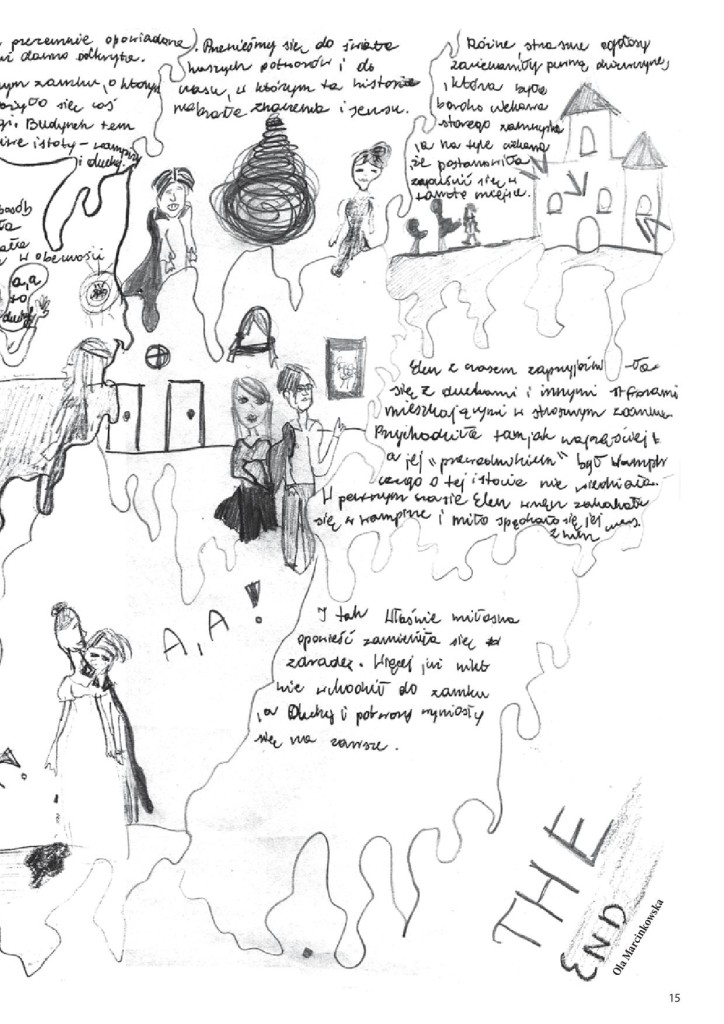 przezemnie opowiadana,
dawno odkryta.
zamku, o którym
się coś
Budynek tem
istoty - wampiry
i duchy.
Przenieśmy się do świata
naszych potworów i do
czasu, w którym ta historia
nabrała znaczenia i sensu.
Różne, straszne odgłosy
zaciekawiły pewną dziewczynę,
która była
bardzo ciekawa
starego zamczyska
,a na tyle ciekawa
,że postanowiła
zapuścić się w
tamte miejsce.
w obecności
a,a
to
duchy
Elen z czasem zaprzyjaźniła
się z duchami i innymi stforami
mieszkającymi w strasznym zamku.
Przychodziła tam jak najczęściej
a jej "przewodnikiem" był wampir
czego o tej istocie nie wiedziała.
W pewnym czasie Elen zakochała
się w wampirze i miło spędzało się jej czas
z nim
A, A!
I tak właśnie miłosna
opowieść zamieniła się
zdradę. Więcej już nikt
nie wchodził do zamku
,a Duchy i potwory wyniosły
się na zawsze.
THE
END
Ola Marcinkowska
15